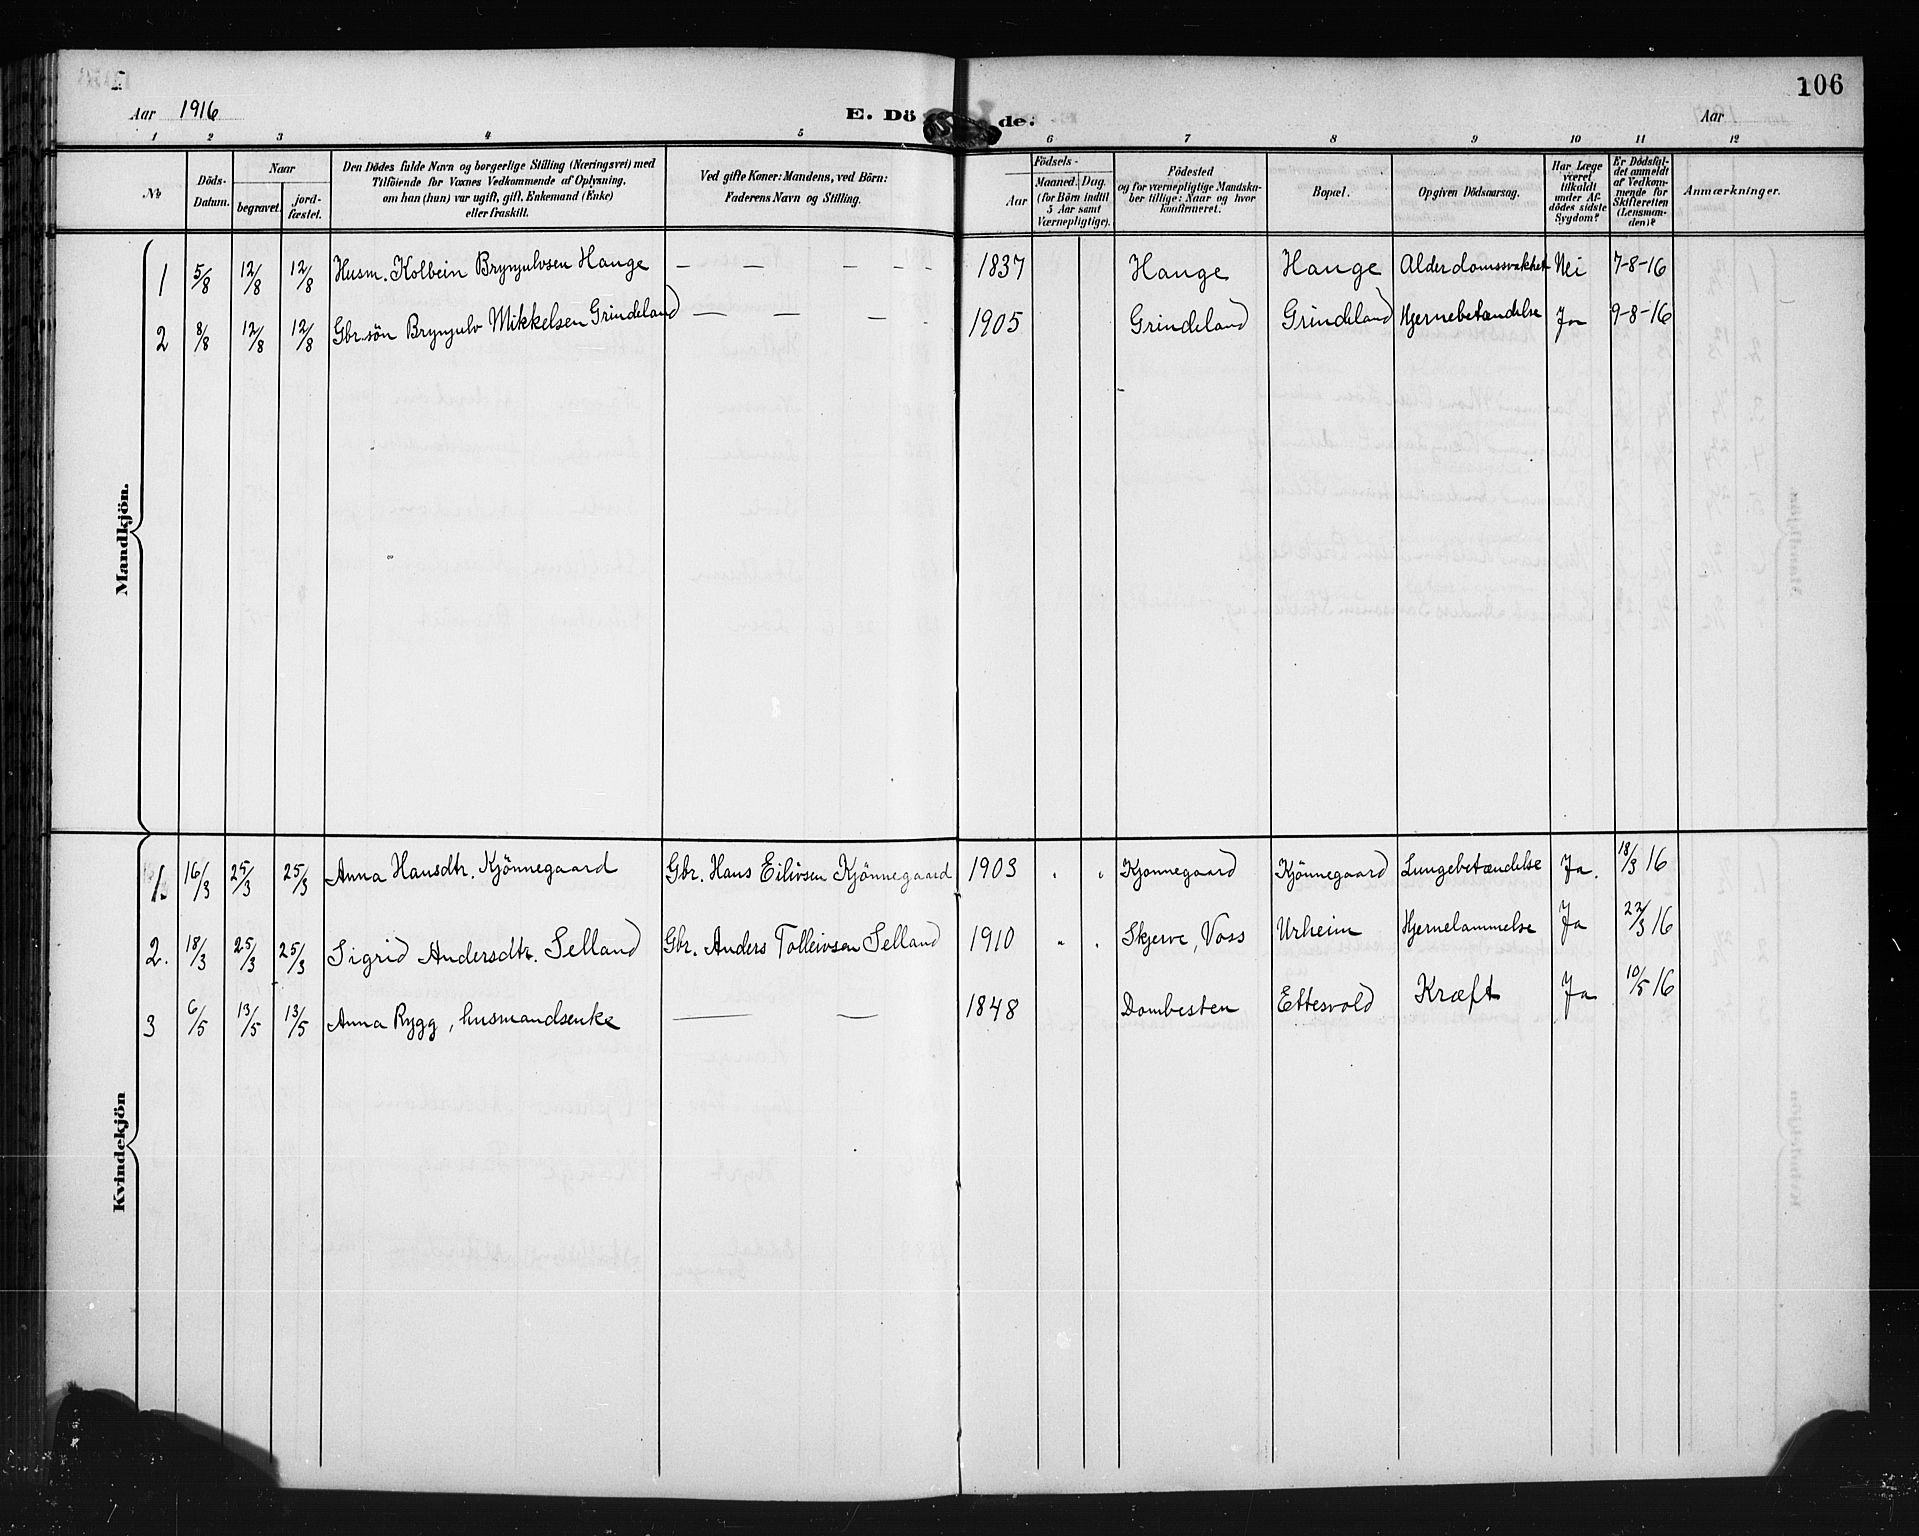 106
Aar 1916
E. Dö de:
Aar
1 2 3 4 5 6 7 8 9 10 11 12
No
Döds-Datum.
Naar
begravet.
jordfæstet.
Den Dödes fulde Navn og borgerlige Stilling (Næringsvei) med
Tilföiende for Voxnes Vedkommende af Oplysning,
om han (hun) var ugift, gift, Enkemand (Enke)
eller fraskilt.
Ved gifte Koner: Mandens, ved Börn:
Faderens Navn og Stilling.
Födsels-
Aar
Maaned. Dag.
(for Börn indtil
5 Aar samt
Værnepligtige).
Födested
og for værnepligtige Mandskaber tillige: Naar og hvor
konfirmeret.
Bopæl.
Opgiven Dödsaarsag.
Har Læge
været
tilkaldt
under Afdödes sidste
Sygdom?
Er Dödsfaldet anmeldt
af Vedkommende for
Skifteretten
(Lensmanden)?
Anmærkninger.
Mandkjön.
1 5/8 12/8 12/8 Husm. Kolbein Brynjulvsen Hauge — — — — — 1837 Hauge Hauge Alderdomssvakhet Nei 7-8-16
2 8/8 12/8 12/8 Gbr.sön Brynjulv Mikkelsen Grindeland — — — — - 1905 Grindeland Grindeland Hjernebetændelse Ja 9-8-16
Kvindekjön
1. 16/3 25/3 25/3 Anna Hansdtr. Kjönnegaard Gbr. Hans Eilivsen Kjönnegaard 1903 " " Kjonnegaard Kjönnegaard Lungebetændelse Ja. 18/3 16
2. 18/3 25/3 25/3 Sigrid Andersdtr. Selland Gbr. Anders Tolleivsen Selland 1910 " " Skjerve, Voss Urheim Hjernelammelse Ja 22/3 16
3 6/5 13/5 13/5 Anna Rygg, husmandsenke — — 1848 Dombesten Ettesvold Kræft Ja 10/5 16